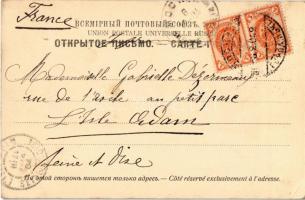 France
ВСЕМІРНЫЙ ПОЧТОВЫЙ СОЮЗЪ.
UNION POSTALE UNIVERSELLE RUSSIE
ОТКРЫТОЕ ПИСЬМО. — CARTE
Mademoiselle Gabrielle
rue de l'Isle au petit parc
L'Isle Adam
Seine et Oise
На этой сторонѣ пишется только адресъ. — Côté réservé exclusivement à l'adresse.